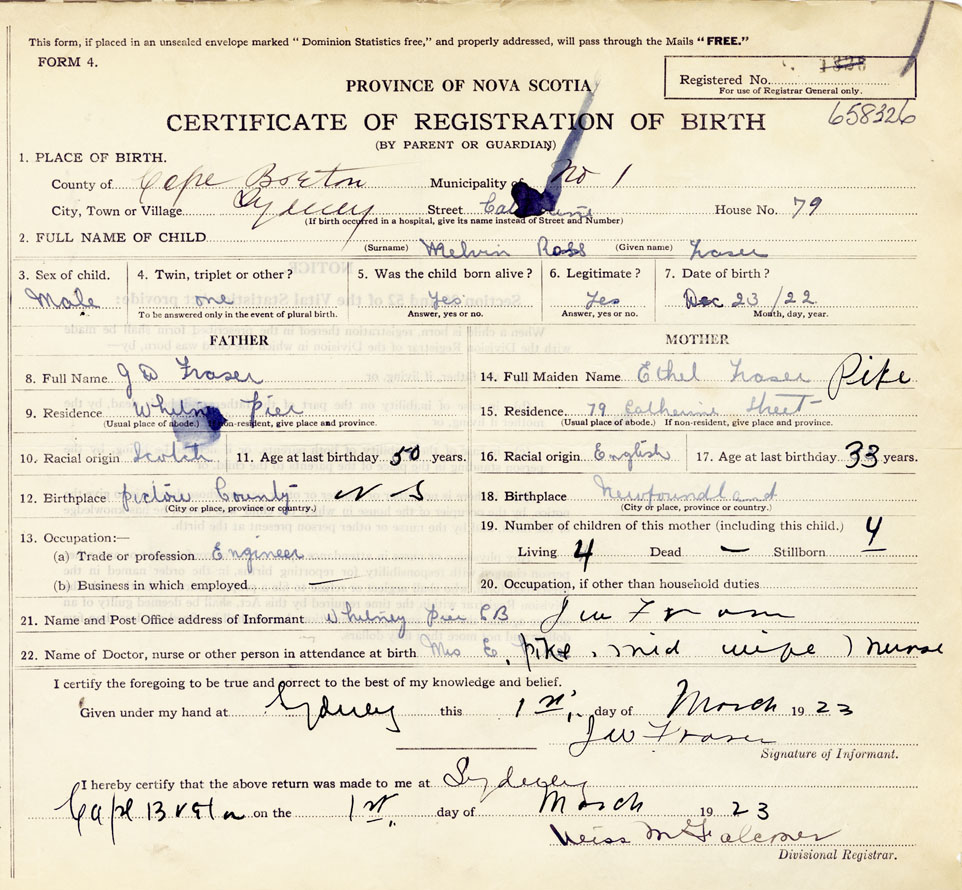 This form, if placed in an unsealed envelope marked “Dominion Statistics free,” and properly addressed, will pass through the Mails “FREE.”
FORM 4.
Registered No. 
For use of Registrar General only.
658326
PROVINCE OF NOVA SCOTIA
CERTIFICATE OF REGISTRATION OF BIRTH
(BY PARENT OR GUARDIAN)
1. PLACE OF BIRTH.
County of Cape Breton Municipality of No 1
City, Town or Village Sydney Street House No. 79
(If birth occurred in a hospital, give its name instead of Street and Number)
2. FULL NAME OF CHILD
(Surname) Melvin Ross (Given name) Fraser
3. Sex of child. 4. Twin, triplet or other? 5. Was the child born alive? 6. Legitimate? 7. Date of birth?
Male one Yes Yes Dec 23/22
To be answered only in the event of plural birth. Answer, yes or no. Answer, yes or no. Month, day, year.
FATHER MOTHER
8. Full Name G D Fraser 14. Full Maiden Name Ethel Fraser Pike
9. Residence Whitney Pier 15. Residence. 79 Catherine Street
(Usual place of abode.) If non-resident, give place and province. (Usual place of abode.) If non-resident, give place and province.
10. Racial origin Scotch 11. Age at last birthday 50 years. 16. Racial origin English 17. Age at last birthday 33 years.
12. Birthplace Pictou County N S 18. Birthplace Newfoundland
(City or place, province or country.) (City or place, province or country.)
13. Occupation:— 19. Number of children of this mother (including this child.) 4
(a) Trade or profession Engineer Living 4 Dead — Stillborn —
(b) Business in which employed — 20. Occupation, if other than household duties
21. Name and Post Office address of Informant Whitney Pier CB J W Fraser
22. Name of Doctor, nurse or other person in attendance at birth Mrs E. Pike. mid wife ) Nurse
I certify the foregoing to be true and correct to the best of my knowledge and belief.
Given under my hand at Sydney this 1st. day of March 1923
J W Fraser
Signature of Informant.
I hereby certify that the above return was made to me at Sydney
Cape Breton on the 1st day of March 1923
Divisional Registrar.